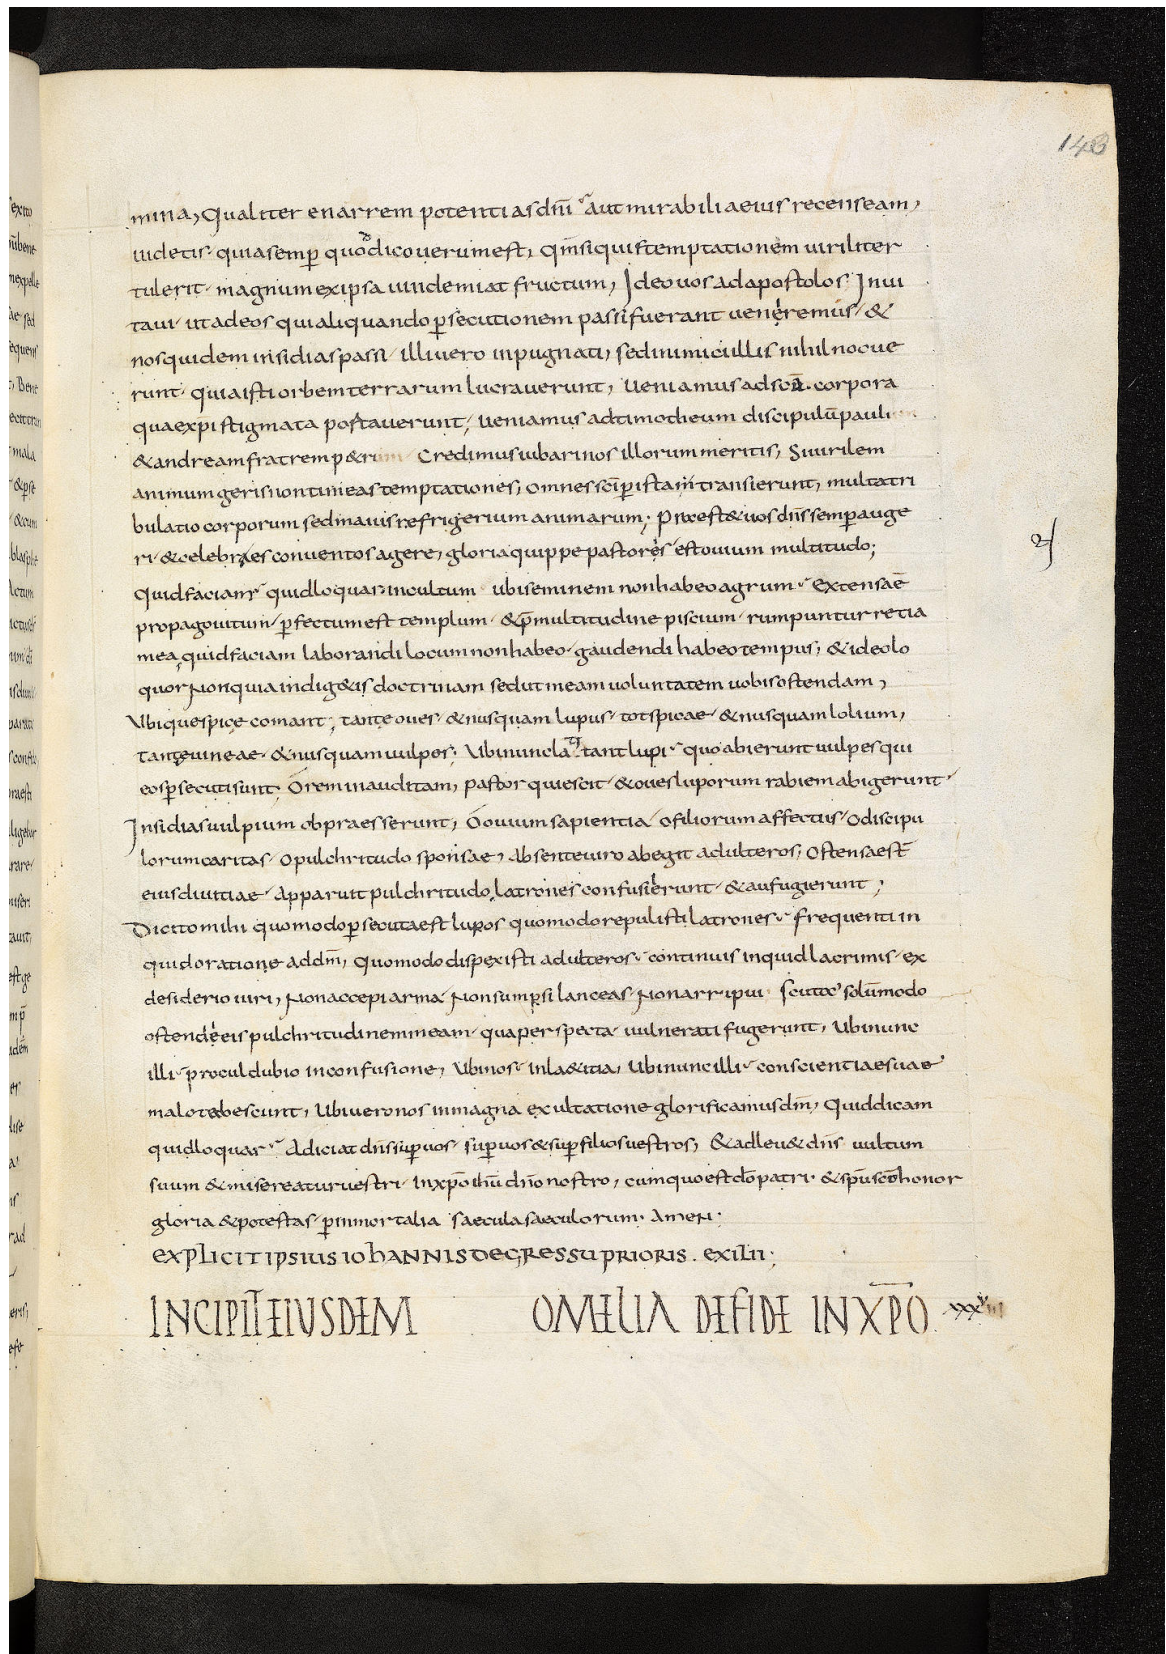 143
mina, Qualiter enarrem potentias dn̄i aut mirabilia eius recenseam,
uidetis quia semp̄ quod dico uerum est, Qm̄ siquis temptationem uiriliter
tulerit magnum ex ipsa uindemiat fructum, Ideo uos ad apostolos Inui
taui ut ad eos qui aliquando p̄secutionem passi fuerant ueneremus &
nos quidem insidias passi illi uero inpugnati, sed inimici illis nihil nocue
runt quia isti orbem terrarum lucrauerunt, Ueniamus ad sc̄a corpora
quae xp̄i stigmata postauerunt, Ueniamus ad timotheum discipulū pauli
& andream fratrem p&ri Credimus iubari nos illorum meritis, Si uirilem
animum geris non timeas temptationes, omnes sc̄i p̄ istam transierunt, multa tri
bulatio corporum sed inauis refrigerium animarum; Praest& uos dn̄s semp̄ auge
ri & celebraes conuentos agere, gloria quippe pastores est ouium multitudo;
Quid faciam quid loquar incultum ubi seminem non habeo agrum Extensae
propago uitium p̄fectum est templum & p̄ multitudine piscium rumpuntur retia
mea, quid faciam laborandi locum non habeo gaudendi habeo tempus, & ideo lo
quor Non quia indig&is doctrinam sed ut meam uoluntatem uobis ostendam,
Ubique spicę comant, tantę oues & nusquam lupus tot spicae & nusquam lolium,
tantę uineae & nusquam uulpes; Ubi nunc latitant lupi quo abierunt uulpes qui
eos p̄secuti sunt O rem inauditam, pastor quiescit & oues luporum rabiem abigerunt
Insidias uulpium obpraesserunt, O ouium sapientia o filiorum affectus o discipu
lorum caritas o pulchritudo sponsae, Absente uiro abegit adulteros, Ostensa est
eius diuitiae apparuit pulchritudo latrones confusi erunt & aufugierunt;
Dicito mihi quomodo p̄secuta est lupos quomodo repulisti latrones frequenti in
quid oratione ad dm̄, Quomodo dispexisti adulteros continuis inquid lacrimis ex
desiderio uiri, Non accepi arma Non sumpsi lanceas Non arripui scuta solummodo
ostendere eis pulchritudinem meam qua perspecta uulnerati fugerunt, Ubi nunc
illi procul dubio in confusione, Ubi nos in la&itia, Ubi nunc illi conscientiae suae
malo tabescunt, Ubi uero nos in magna exultatione glorificamus dm̄, Quid dicam
quid loquar Adiciat dn̄s sup̄ uos sup̄ uos & sup̄ filios uestros, & adleu& dn̄s uultum
suum & misereatur uestri In xp̄o ihū dn̄o nostro, cum quo est dō patri & sp̄u sc̄o honor
gloria & potestas p̄ inmortalia saecula saeculorum Amen;
EXPLICIT IPSIUS IOHANNIS DEGRESSU PRIORIS. EXILII;
INCIPIT EIUSDEM OMELIA DE FIDE IN XP̄O